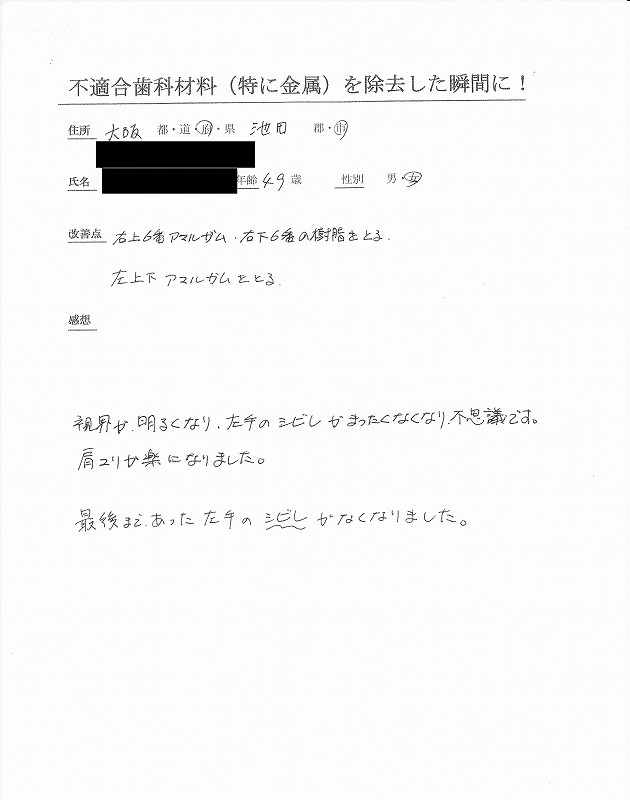 不適合歯科材料（特に金属）を除去した瞬間に！
住所 大阪 都・道・府・県 池田 郡・市
氏名 年齢 49 歳 性別 男・女
改善点 右上6番アマルガム・右下6番の樹脂をとる.
左上下 アマルガムをとる.
感想
視界が、明るくなり、左手のシビレがまったくなくなり、不思議です。
肩コリが楽になりました。
最後まで、あった左手のシビレがなくなりました。